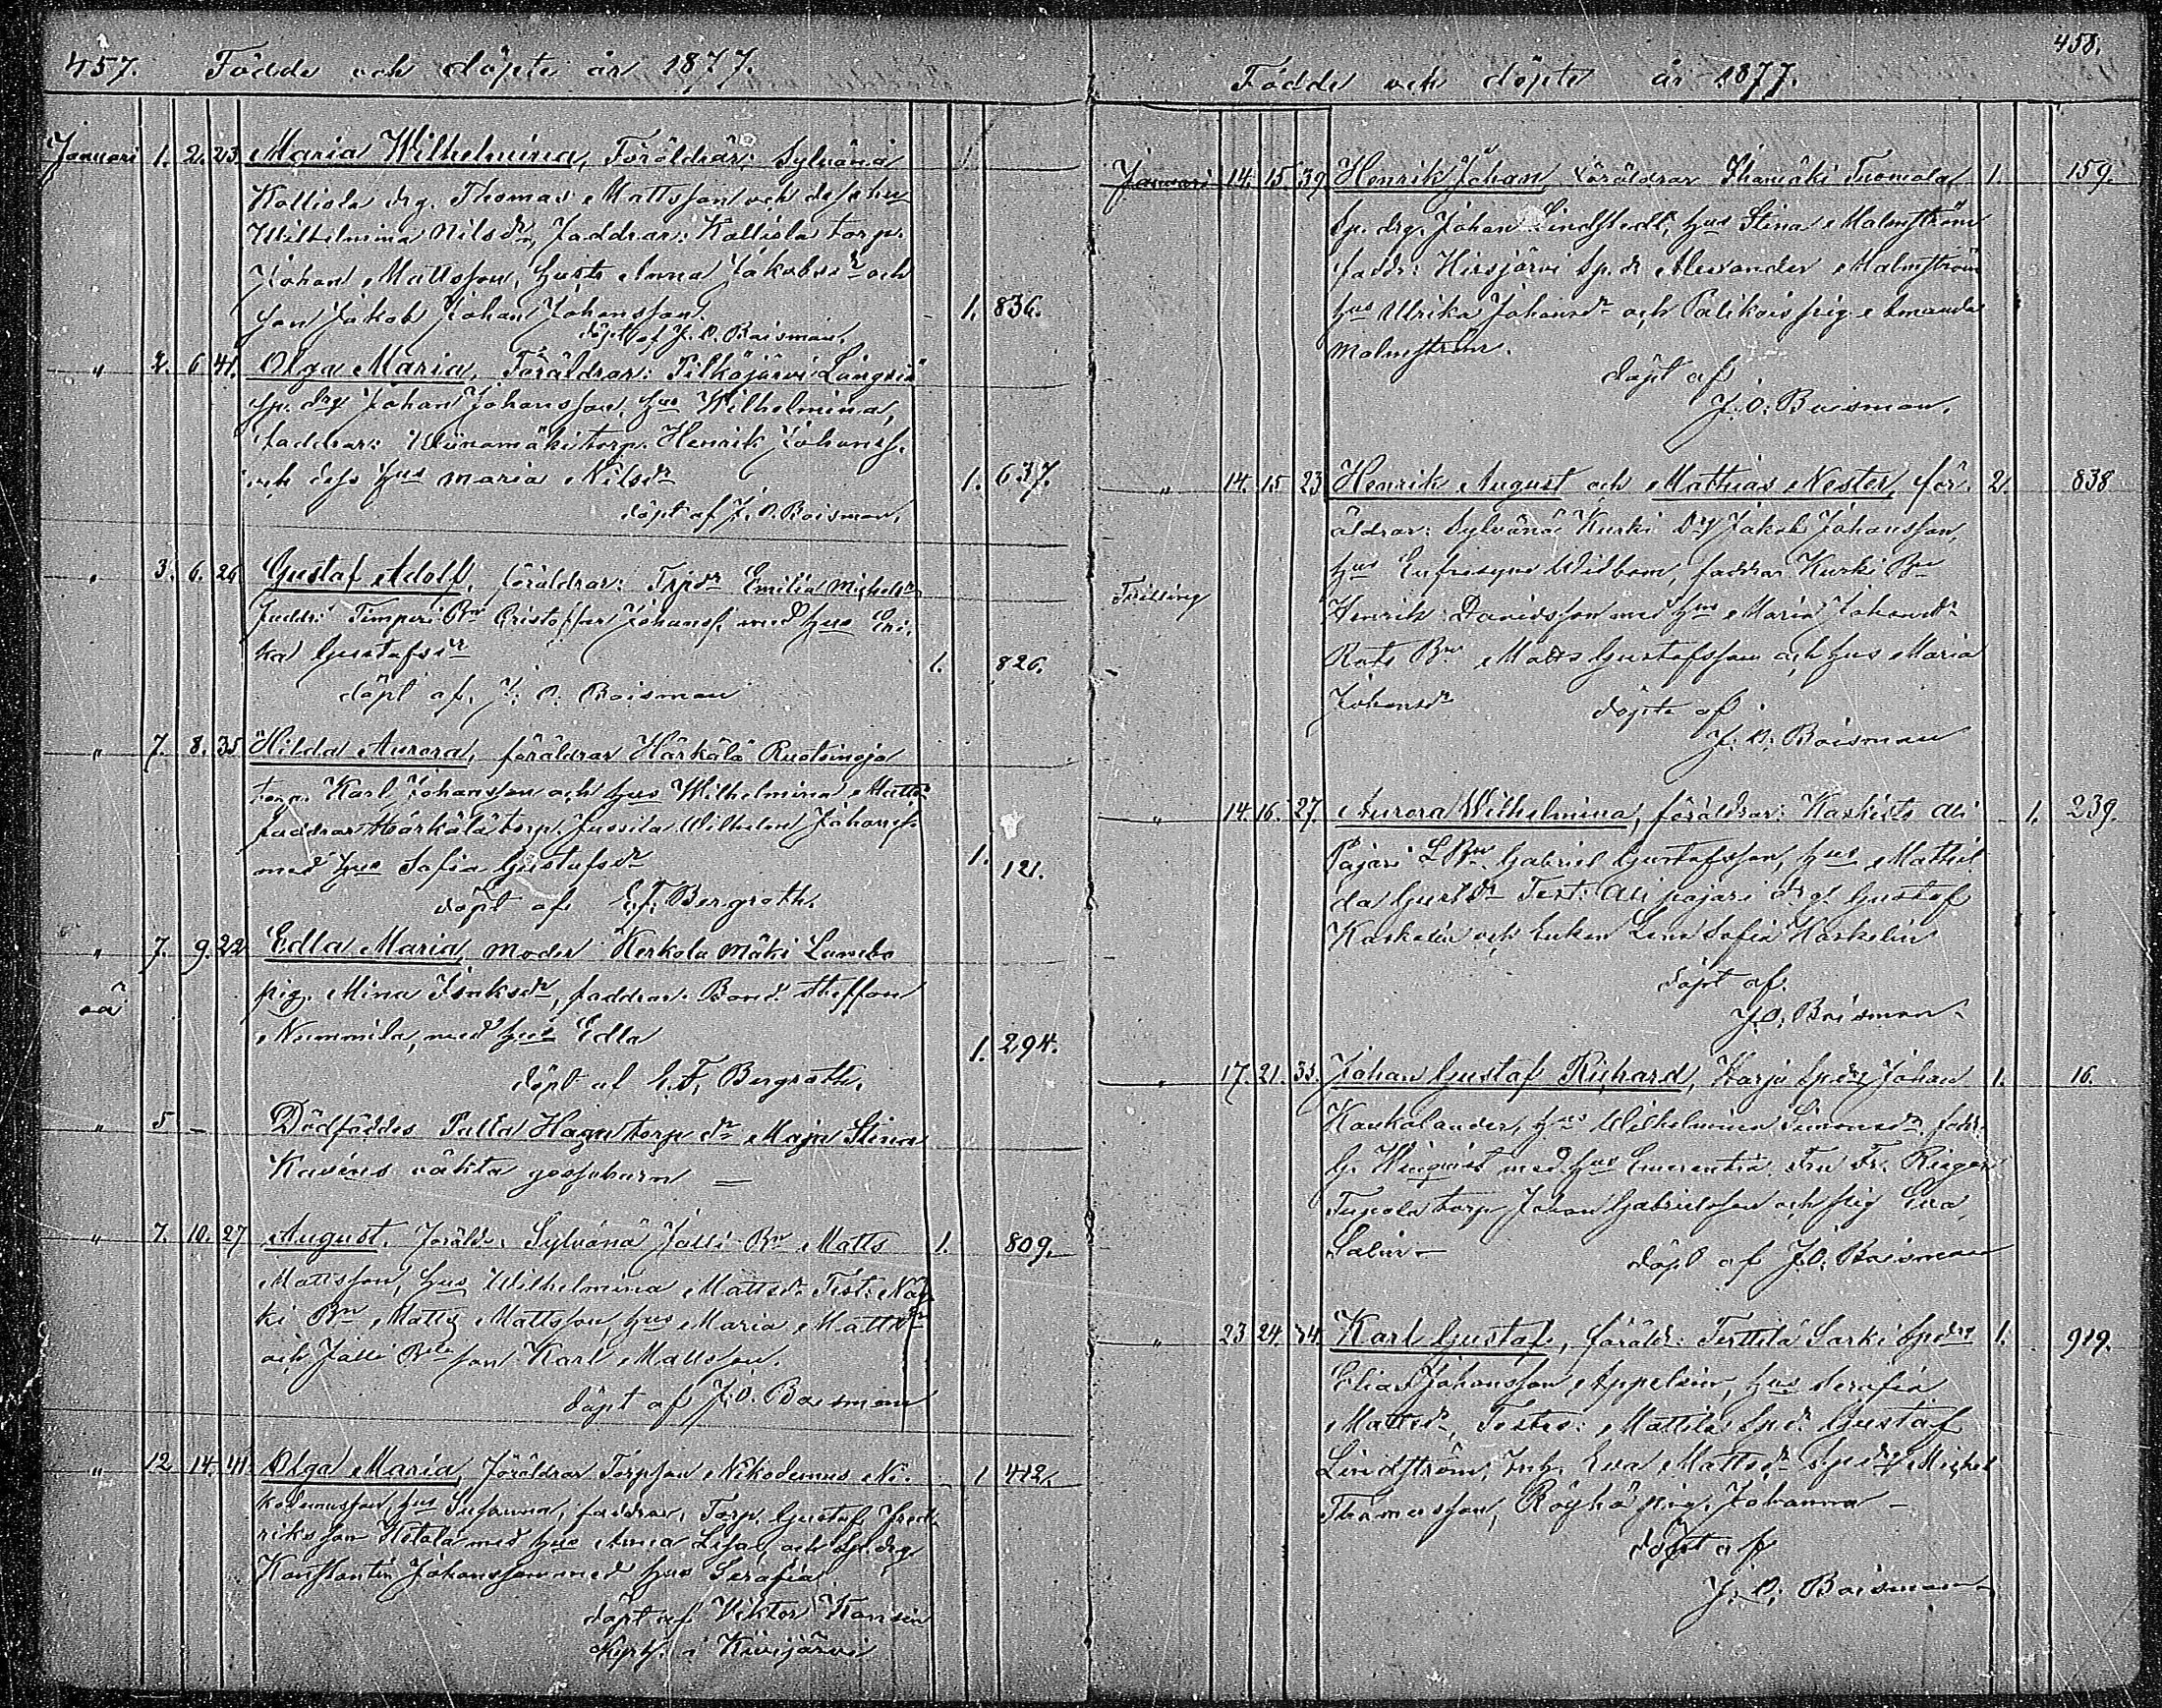 457. Födde och döpte år 1877.
Januari 1. 2. 23. Maria Wilhelmina, Föräldrar: Sylvänä
Kolliola drg. Thomas Mattsson och dess hu
Wilhelmina Nilsdr, Faddrar: Kolliola torp.
Johan Mattsson, hustr Anna Jakobsdr och
son Jakob Johan Johansson. 1. 836.
döpt af J. O. Boisman.
" 2. 6 41. Olga Maria, Föräldrar:
sp. drg Johan Johansson, hus Wilhelmina,
faddrar: torp. Henrik Johanss.
och dess hus Maria Nilsdr 1. 637.
döpt af J. O. Boisman.
" 3. 6. 26 Gustaf Adolf, föräldrar: Emilia Michelsdr
Faddr: Timperi Bn Cristoffer Johanss. med hus Eri,
ka Gustafsdr 1. 826.
döpt af. J. O. Boisman
" 7. 8. 35 Hilda Aurora, föräldrar Härkälä Ruotsinoja
torp. Karl Johansson och hus Wilhelmina Matts
faddrar Härkälä torp. Jussila Wilhelm Johanss.
med hus Sofia Gustafsdr 1. 121.
döpt af E. F. Bergroth.
" 7. 9. 22 Edla Maria, moder Kerkola Mäki
oä pig. Mina Isaksdr, faddrar. Bond. Steffan
Nummila, med hus Edla 1. 294.
döpt af E. F. Bergroth.
" 5 - Dödföddes Palta Hagu torp dr Maja Stina
Kaséns oäkta gossebarn —
" 7. 10. 27 August. Föräldr: Sylvänä Jalli Bn Matts 1. 809.
Mattsson, hus Wilhelmina Mattsdr Test:
ki Bn Matts Mattsson, hus Maria Mattsdr
och Jalli son Karl Mattsson.
döpt af J. O. Boisman
" 12 14. 41. Olga Maria, föräldrar Torpson Nikodemus Ni- 1 412.
kodemusson, hus Susanna, faddrar, Torp. Gustaf Fred-
riksson Ketola med hus Anna Lisa, och sp. drg.
Konstantin Johansson med hus Serafia
döpt af Viktor Konsin
i Kivijärvi
458.
Födde och döpte år 1877.
Januari 14. 15. 39 Henrik Johan, Föräldrar Ihamäki Tuomola 1. 159.
sp. drg. Johan Lindstedt, hus Stina Malmström
faddr: Hirsjärvi sp. dr Alexander Malmström
hus Ulrika Johansdr och Palikais pig. Amanda
Malmström.
döpt af
J. O. Boisman.
" 14. 15 23 Henrik August och Mattias Nestor, för- 2. 838
äldrar: Sylvänä Kurki drg Jakob Johansson,
hus Eufrosyne Widbom, faddrar Kurki Bn
Tvilling Henrik Davidsson med hus Maria Johansdr
Bn Matts Gustafsson och hus Maria
Johansdr döpte af
J. O. Boisman
" 14. 16. 27. Aurora Wilhelmina, föräldrar: Kaskisto Ali 1. 239.
Pajari L Bn Gabriel Gustafsson, hus Mathil
da Gustdr Test: Ali pajari drg. Gustaf
Kaskelin och Enkan Lena Sofia Kaskelin
döpt af.
J. O. Boisman
" 17. 21. 33. Johan Gustaf Richard, Karju sp drg Johan 1. 16.
Kaukolander, hus Wilhelmina Simonsdr, fadr.
G. Winqvist med hus Emerentia Fru Fr.
torp Johan Gabrielsson och pig Eva
Salin — döpt af J. O. Boisman
" 23 24. 34. Karl Gustaf, föräld: Terttilä Sarki sp drg 1. 919.
Elias Johansson Appelsin, hus Serafia
Mattsdr, Testes: Mattila sp. dr Gustaf
Lindström, Inh. Eva Mattsdr sp drg Michel
Thomasson, Röyhö pig. Johanna —
döpt af
J. O. Boisman